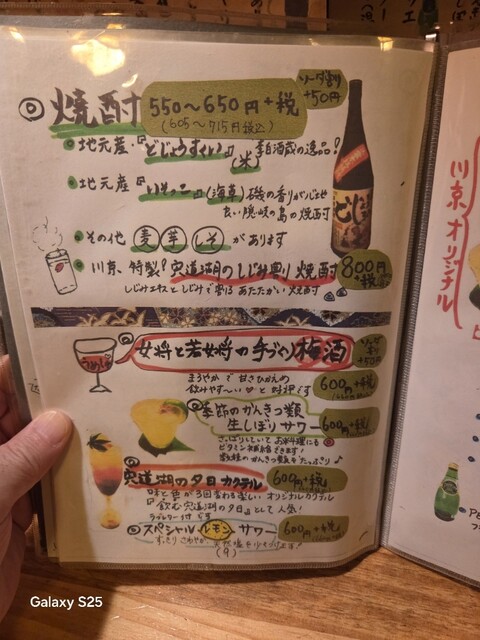 焼酎 550〜650円+税
(605〜715円税込)
ソーダ割り
+50円
地元産『どじょうすくい』
(米) 李白酒蔵の逸品!
地元産『いそっこ』(海草) 磯の香りが心地
良い隠岐の島の焼酎
その他 麦 芋 しそ があります
川京、特製! 宍道湖のしじみ割り 焼酎 800円
+税
しじみエキスとしじみで割る あたたかい 焼酎
うめしゅ
女将と若女将の手づくり梅酒
ソーダ
割り
+50円
まろやかで甘さひかえめ
飲みやすーい♡と好評です
600円+税
季節のかんきつ類
生しぼりサワー 600円+税
さっぱりしていてお米料理にも
ビタミン補給できます!
宍道湖の夕日カクテル 600円+税
味と色が3回変わる楽しい オリジナルカクテル
『飲む宍道湖の夕日』として人気!
スペシャルレモンサワー 600円+税
(9)
川京オリジナル
Galaxy S25